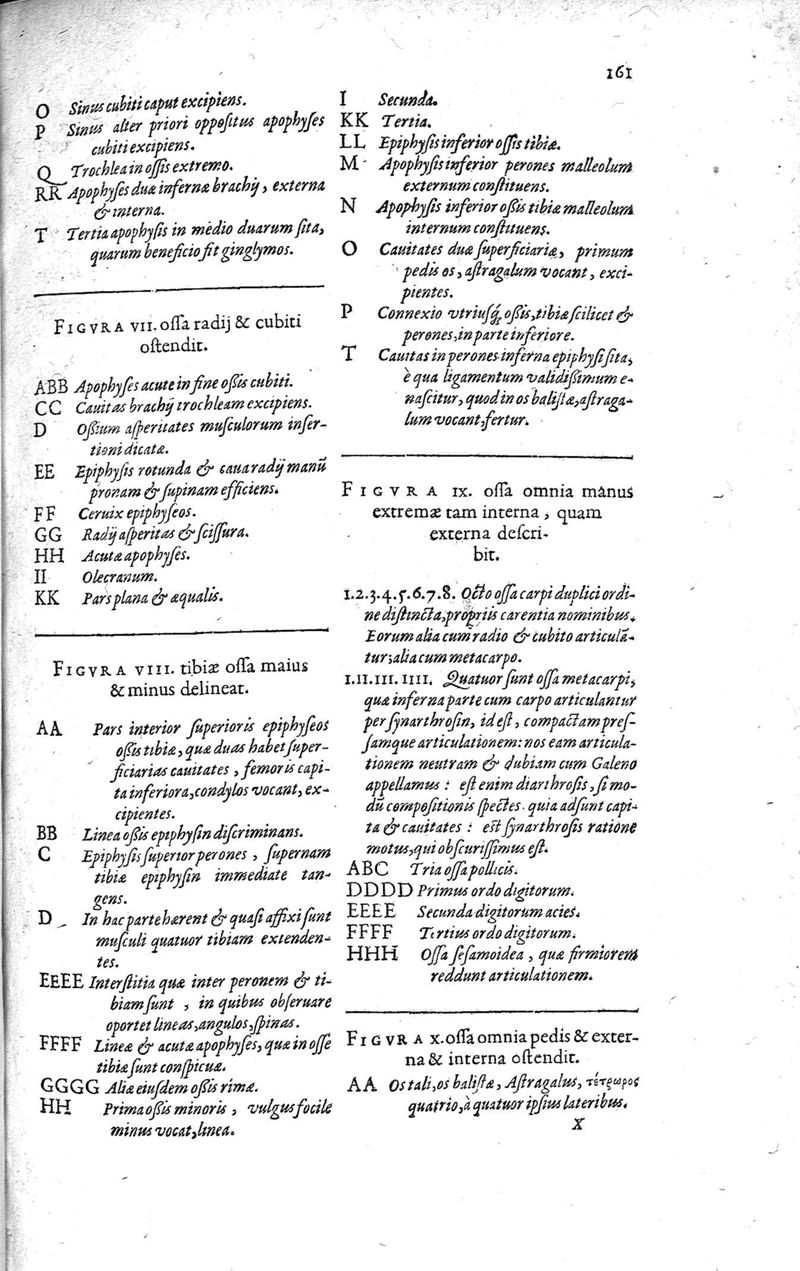 161
O Sinus cubiti caput excipiens.
P Sinus alter priori oppositus apophyses
cubiti excipiens.
Q Trochlea in ossis extremo.
RR Apophyses duæ infernæ brachij, externa
& interna.
T Tertia apophysis in medio duarum sita,
quarum beneficio fit ginglymos.
FIGVRA VII. ossa radij & cubiti
ostendit.
ABB Apophyses acutæ in fine ossis cubiti.
CC Cauitas brachij trochleam excipiens.
D Ossium asperitates musculorum inser-
tioni dicatæ.
EE Epiphysis rotunda & caua radij manũ
pronam & supinam efficiens.
FF Ceruix epiphyseos.
GG Radij asperitas & scissura.
HH Acutæ apophyses.
II Olecranum.
KK Pars plana & æqualis.
FIGVRA VIII. tibiæ ossa maius
& minus delineat.
AA Pars interior superioris epiphyseos
ossis tibiæ, quæ duas habet super-
ficiarias cauitates, femoris capi-
ta inferiora, condylos vocant, ex-
cipientes.
BB Linea ossis epiphysin discriminans.
C Epiphysis superior perones, supernam
tibiæ epiphysin immediate tan-
gens.
D In hac parte hærent & quasi affixi sunt
musculi quatuor tibiam extenden-
tes.
EEEE Interstitia quæ inter peronem & ti-
biam sunt, in quibus obseruare
oportet lineas, angulos, spinas.
FFFF Lineæ & acutæ apophyses, quæ in osse
tibiæ sunt conspicuæ.
GGGG Aliæ eiusdem ossis rimæ.
HH Prima ossis minoris, vulgus focile
minus vocat, linea.
I Secunda.
KK Tertia.
LL Epiphysis inferior ossis tibiæ.
M Apophysis inferior perones malleolum
externum constituens.
N Apophysis inferior ossis tibiæ malleolum
internum constituens.
O Cauitates duæ superficiariæ, primum
pedis os, astragalum vocant, exci-
pientes.
P Connexio vtriusq; ossis, tibiæ scilicet &
perones, in parte inferiore.
T Cauitas in perones inferna epiphysi sita,
è qua ligamentum validissimum e-
nascitur, quod in os balistæ, astraga-
lum vocant, fertur.
FIGVRA IX. ossa omnia manus
extremæ tam interna, quam
externa descri-
bit.
1.2.3.4.5.6.7.8. Octo ossa carpi duplici ordi-
ne distincta, propriis carentia nominibus.
Eorum alia cum radio & cubito articulã-
tur; alia cum metacarpo.
I.II.III.IIII. Quatuor sunt ossa metacarpi,
quæ inferna parte cum carpo articulantur
per synarthrosin, id est, compactam pres-
samque articulationem: nos eam articula-
tionem neutram & dubiam cum Galeno
appellamus: est enim diarthrosis, si mo-
dũ compositionis spectes. quia adsunt capi-
ta & cauitates: est synarthrosis ratione
motus, qui obscurissimus est.
ABC Tria ossa pollicis.
DDDD Primus ordo digitorum.
EEEE Secunda digitorum acies.
FFFF Tertius ordo digitorum.
HHH Ossa sesamoidea, quæ firmiorem
reddunt articulationem.
FIGVRA X. ossa omnia pedis & exter-
na & interna ostendit.
AA Os tali, os balistæ, Astragalus, τέτρωρος
quatrio, à quatuor ipsius lateribus.
X